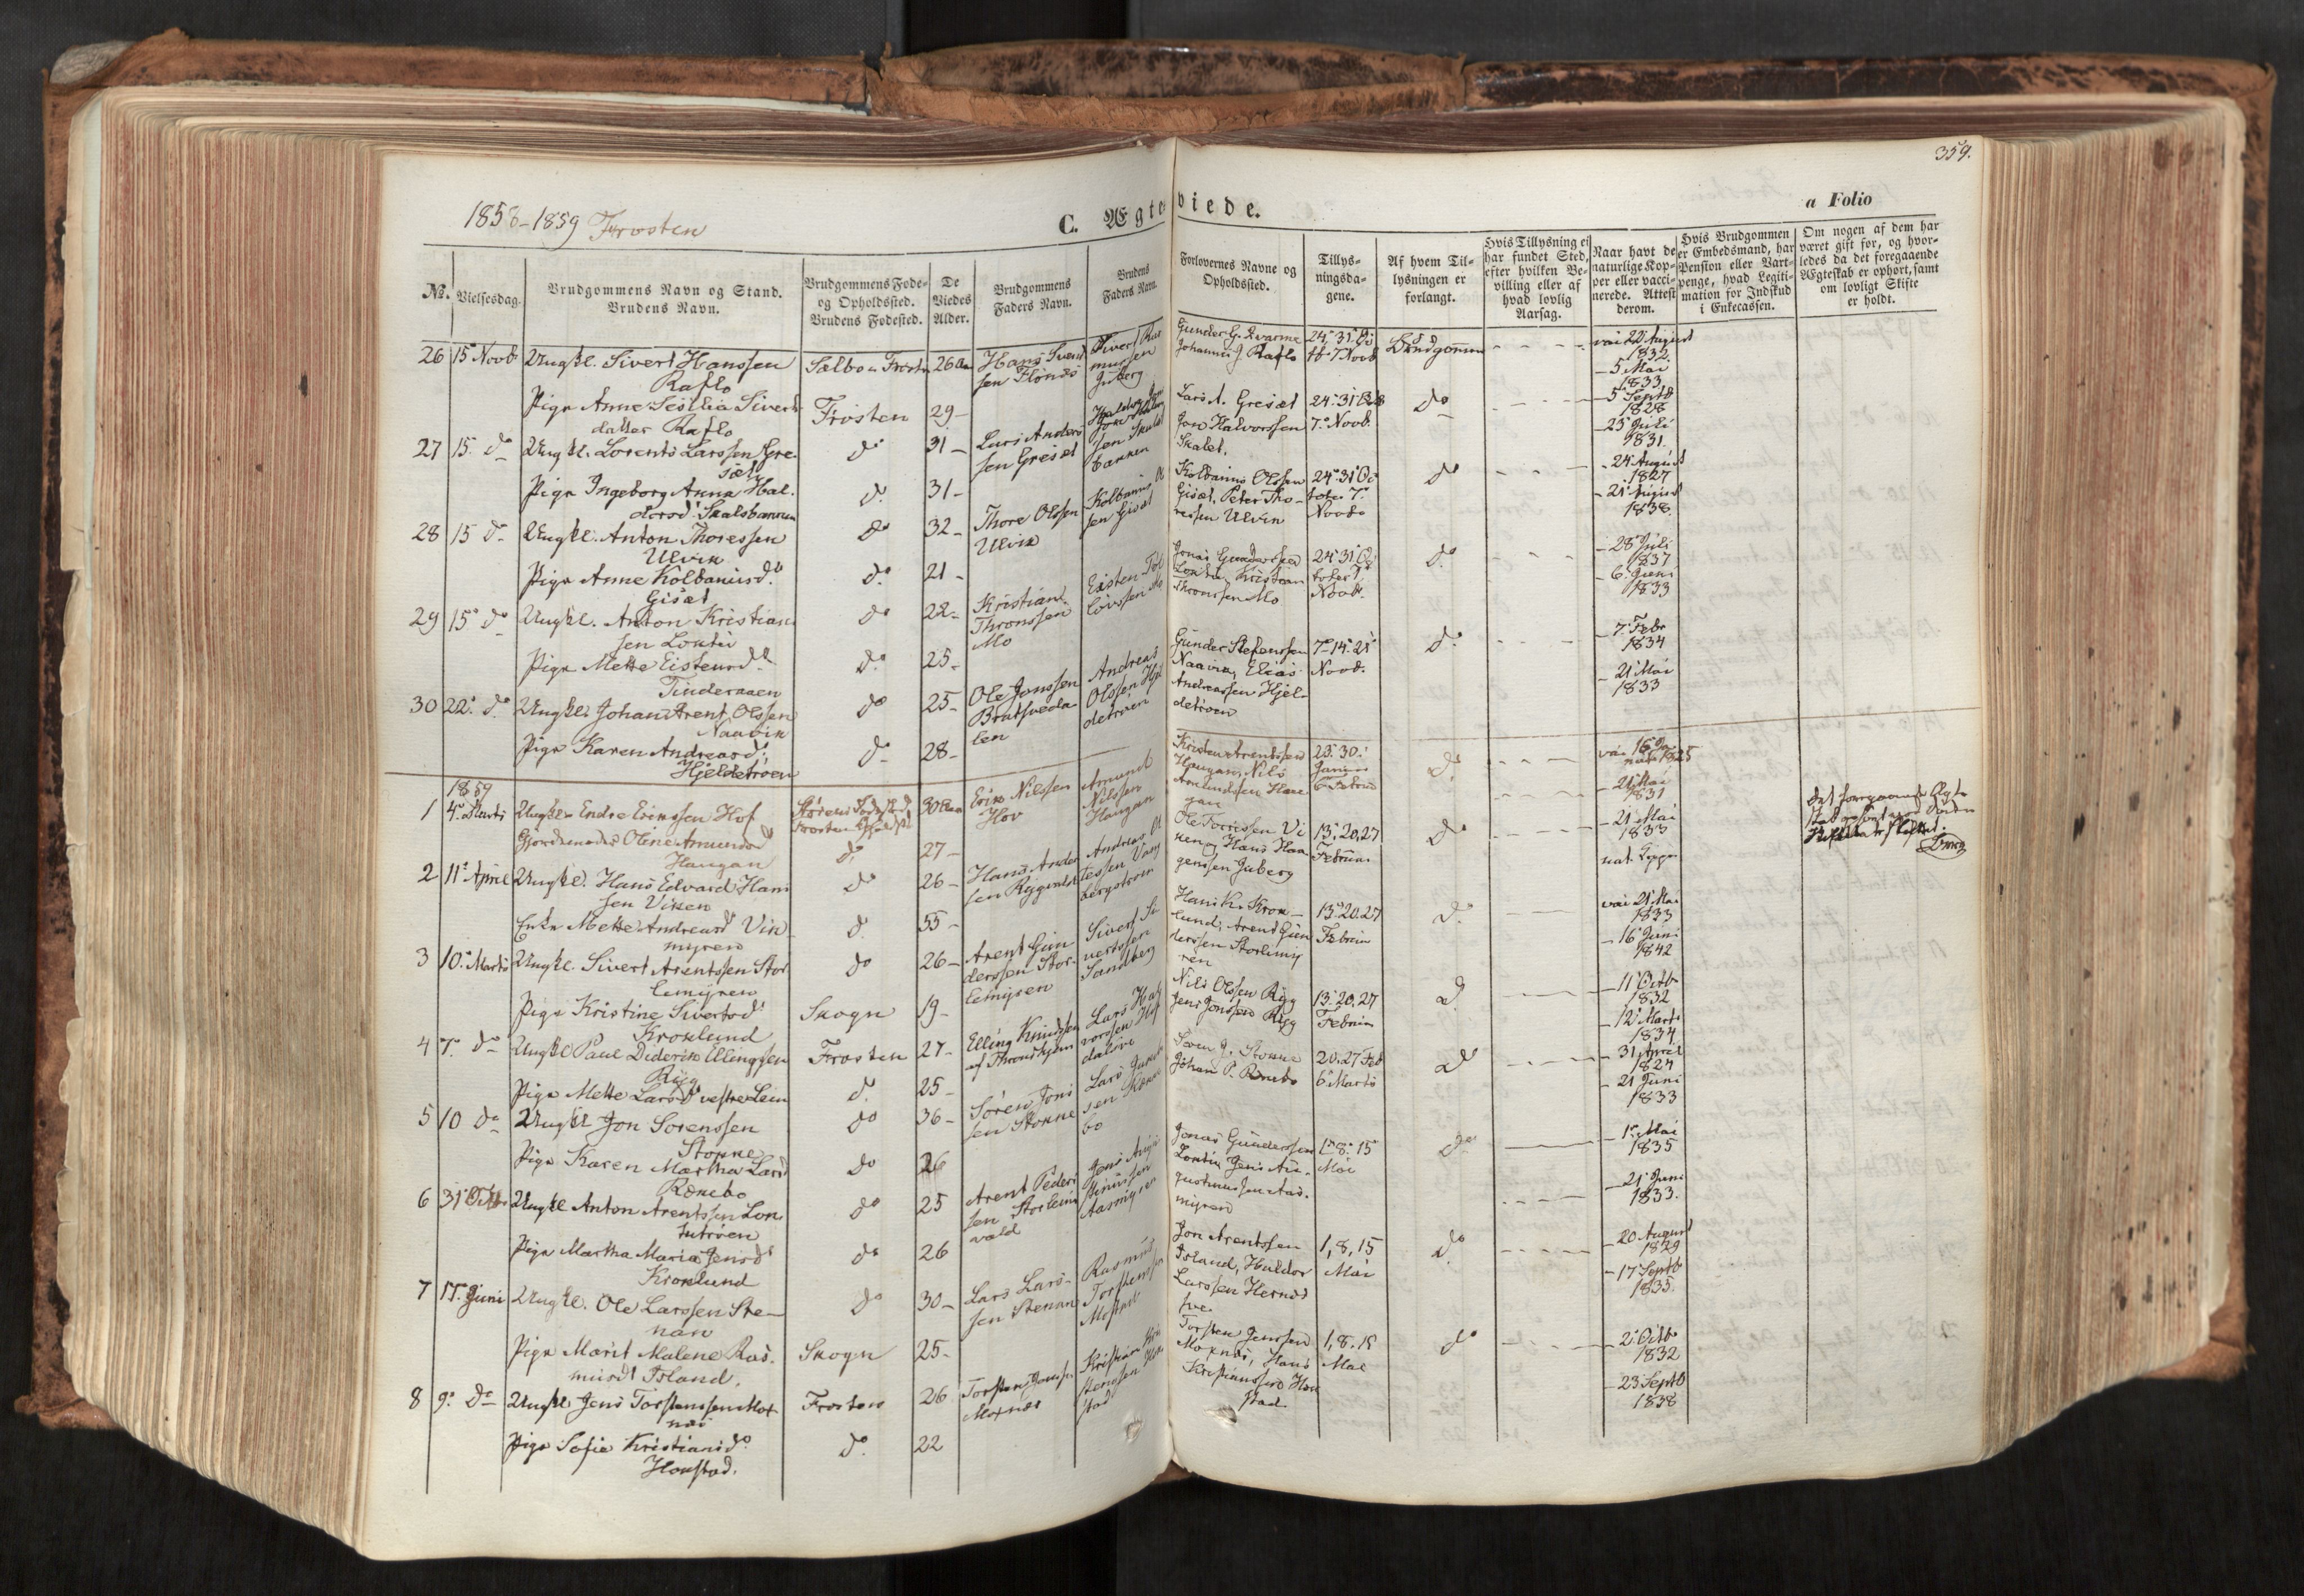 359.
1858-1859 Frosten
C. Ægteviede.
a Folio
No.
Vielsesdag.
Brudgommens Navn og Stand.
Brudens Navn.
Brudgommens Føde-
og Opholdssted.
Brudens Fødested.
De
Viedes
Alder.
Brudgommens
Faders Navn.
Brudens
Faders Navn.
Forlovernes Navne og
Opholdssted.
Tillys-
ningsda-
gene.
Af hvem Til-
lysningen er
forlangt.
Hvis Tillysning ei
har fundet Sted,
efter hvilken Be-
villing eller af
hvad lovlig
Aarsag.
Naar havt de
naturlige Kop-
per eller vacci-
nerede. Attest
derom.
Hvis Brudgommen
er Embedsmand, har
Pension eller Vart-
penge, hvad Legiti-
mation for Indskud
i Enkecassen.
Om nogen af dem har
været gift før, og hvor-
ledes da det foregaaende
Ægteskab er ophørt, samt
om lovligt Skifte
er holdt.
26 15 Novb Ungkl. Sivert Hanssen
Raflo
Sælbo Frosten 26 Aar
Hans Svend
sen Flønæs
Sivert Ras
mussen
Juberg
Gunder G. Kvarme
Johannes J. Raflo
24. 31. Oc
tb 7 Novb
Brudgommen
vac 22 August
1832
Pige Anne Sesilia Siverts
datter Raflo
Frosten 29-
5 Mai
1833
27 15. do Ungkl. Lorents Larssen Gre-
sæt
do 31-
Lars Anders
sen Gresæt
Lars A. Gresæt
Jon Halvorssen
Skalet.
24. 31 Octb
7. Novb.
do
5 Septb
1828
Pige Ingeborg Anna Hal.
vorsd. Skalsbannen
do 31-
25 Juli
1831.
28 15 do Ungkl. Anton Thoressen
Ulvik
do 32-
Thore Olssen
Ulvik
Kolbanus O
sen Gisæt
Kolbanus Olssen
Gisæt, Peter Tho-
ressen Ulvik
24. 31 Oc
tober 7.
Novb.
do
24 August
1827
Pige Anne Kolbanusd.
Gisæt
do 21-
21 August
1838.
29 15 do Ungkl. Anton Kristian
sen Loktu
do 22-
Kristian
Thronssen
Mo
Eisten Tol
løvssen
Jonas Gunderssen
Loktu, Kristian
Thronssen Mo
24. 31 Oc
tober 7.
Novb.
do
28 Juli
1837
Pige Mette Eistensd.
Tinderaaen
do 25-
6. Juni
1833
30 22. do Ungkl. Johan Arent Olssen
Naavik
do 25-
Ole Jonssen
Bratsveda-
len
Andreas
Olssen Hjel
detrøen
Gunder Stefenssen
Naavik, Elias
Andreassen Hjel-
detrøen
7. 14. 21
Novb.
do
7. Febr
1834
Pige Karen Andreasd.
Hjeldetrøen
do 28-
21 Mai
1833
1859
1 4. Marts Ungkl. Endre Erikssen Hof
30 Aar
Erik Nilssen
Hov
Amund
Nilssen
Haugan
Kristen Arentssen
Haugan, Nils
Amundssen Hau-
gan
23. 30.
Januar
6 Februar
do
Gjordemoder Oline Amundsd
Haugan
do 27-
21 Mai
1831
2 11. April Ungkl. Hans Edvard Hans
sen Viken
do 26-
Hans Ander
sen
Andreas
Ole Torrissen Vi
ken og Hans Haa-
genssen Juberg
13. 20. 27
Februar
do
21 Mai
1833
Enke Mette Andreasd Vik
myren
do 55-
nat. Kopper
det foregaaende Ægte
skab
3 10. Marts Ungkl. Sivert Arentssen Stor-
lemyren
do 26-
Arent Gun
derssen Stor-
lemyren
Sivert Si
vertssen
Sandberg
Hans K. Krok-
lund, Arent Gun
derssen Storlemy
ren
13. 20. 27
Februar
do
vac 21 Mai
1833
Pige Kristine Sivertsd
Kroklund
Skogn 19-
16 Juni
1842
4 7. do Ungkl Paul Diderik Ellingssen
Ryg
Frosten 27-
Elling Knudssen
af Throndhjem
Lars Hal
vorssen
Nils Olssen Ryg
Jens Jonssen Ryg
13. 20. 27
Februar
do
11 Octb
1832
Pige Mette Larsd vestre Lein
do 25-
12 Marts
1834
5 10 do Ungkl Jon Sørenssen
Stokke
do 36-
Søren Jons
sen Stokke
Lars
sen
bo
Sven J. Stokke
Johan P. Rønebo
20. 27 Feb
6 Marts
do
31 April
1824
Pige Karen Martha Larsd
Rønebo
do 26
21 Juni
1833
6 31 Octb Ungkl Anton Arentssen Lok
tutrøen
do 25
Arent Peders
sen Storleins
vald
Jens Augu
stinussen
Aasmyren
Jonas Gunderssen
Loktu, Jens Au-
gustinussen Aas-
myren
1. 8. 15
Mai
do
1. Mai
1835
Pige Martha Maria Jensd
Kroklund
do 26
21 Juni
1833.
7 17. Juni Ungkl. Ole Larssen Ste-
nan
do 30-
Lars Lars-
sen Stenan
Rasmus
Torstenssen
Jon Arentssen
Island, Haldor
Larssen Hernæs
1, 8, 15
Mai
do
20 August
1829
Pige Marit Malene Ras-
musd Island.
Skogn 25-
17 Septb
1835.
8 9. do Ungkl Jens Torstenssen Mok
næs
Frosten 26
Torsten Jenssen
Moknæs
Kristian
stenssen
stad
Torsten Jenssen
Moknæs, Hans
Kristianssen Hok
stad
1, 8. 15
Mai
do
2. Octb
1832
Pige Sofie Kristiansd.
Hokstad.
do 22
23 Septb
1838